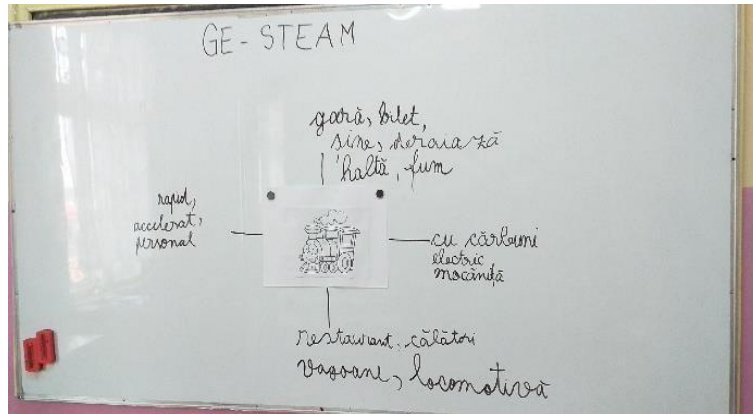 GE-STEAM
gară, bilet,
sine, deraiază
haltă, fum
rapid,
accelerat,
personal
cu cărbuni
electric
mocăniță
restaurant, călători
vagoane, locomotivă